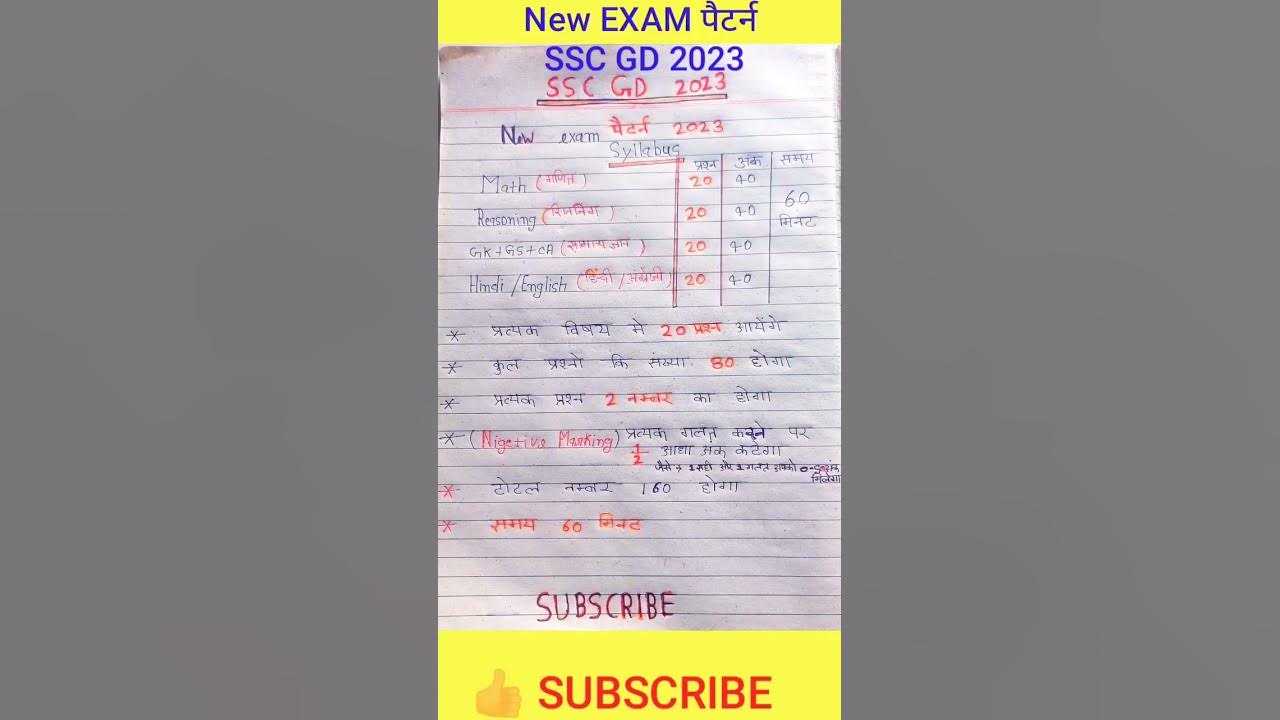 New EXAM पैटर्न
SSC GD 2023
SSC GD 2023
New exam पैटर्न 2023
Syllabus
प्रश्न अंक समय
Math (गणित) 20 40
60
Reasoning (रिजनिंग) 20 40
मिनट
GK+GS+CA (समान्य ज्ञान) 20 40
Hindi/English (हिंदी/अंग्रेजी) 20 40
* प्रत्यक विषय मे 20 प्रश्न आयेंगे
* कुल प्रश्नो कि संख्या 80 होगा
* प्रत्यक प्रश्न 2 नम्बर का होगा
* (Nigetive Marking) प्रत्यक गलत करने पर
1/2 आधा अंक कटेगा
जैसे → 1 सही और 1 गलत आपको
मिलेगा
* टोटल नम्बर 160 होगा
* समय 60 मिनट
SUBSCRIBE
👍 SUBSCRIBE